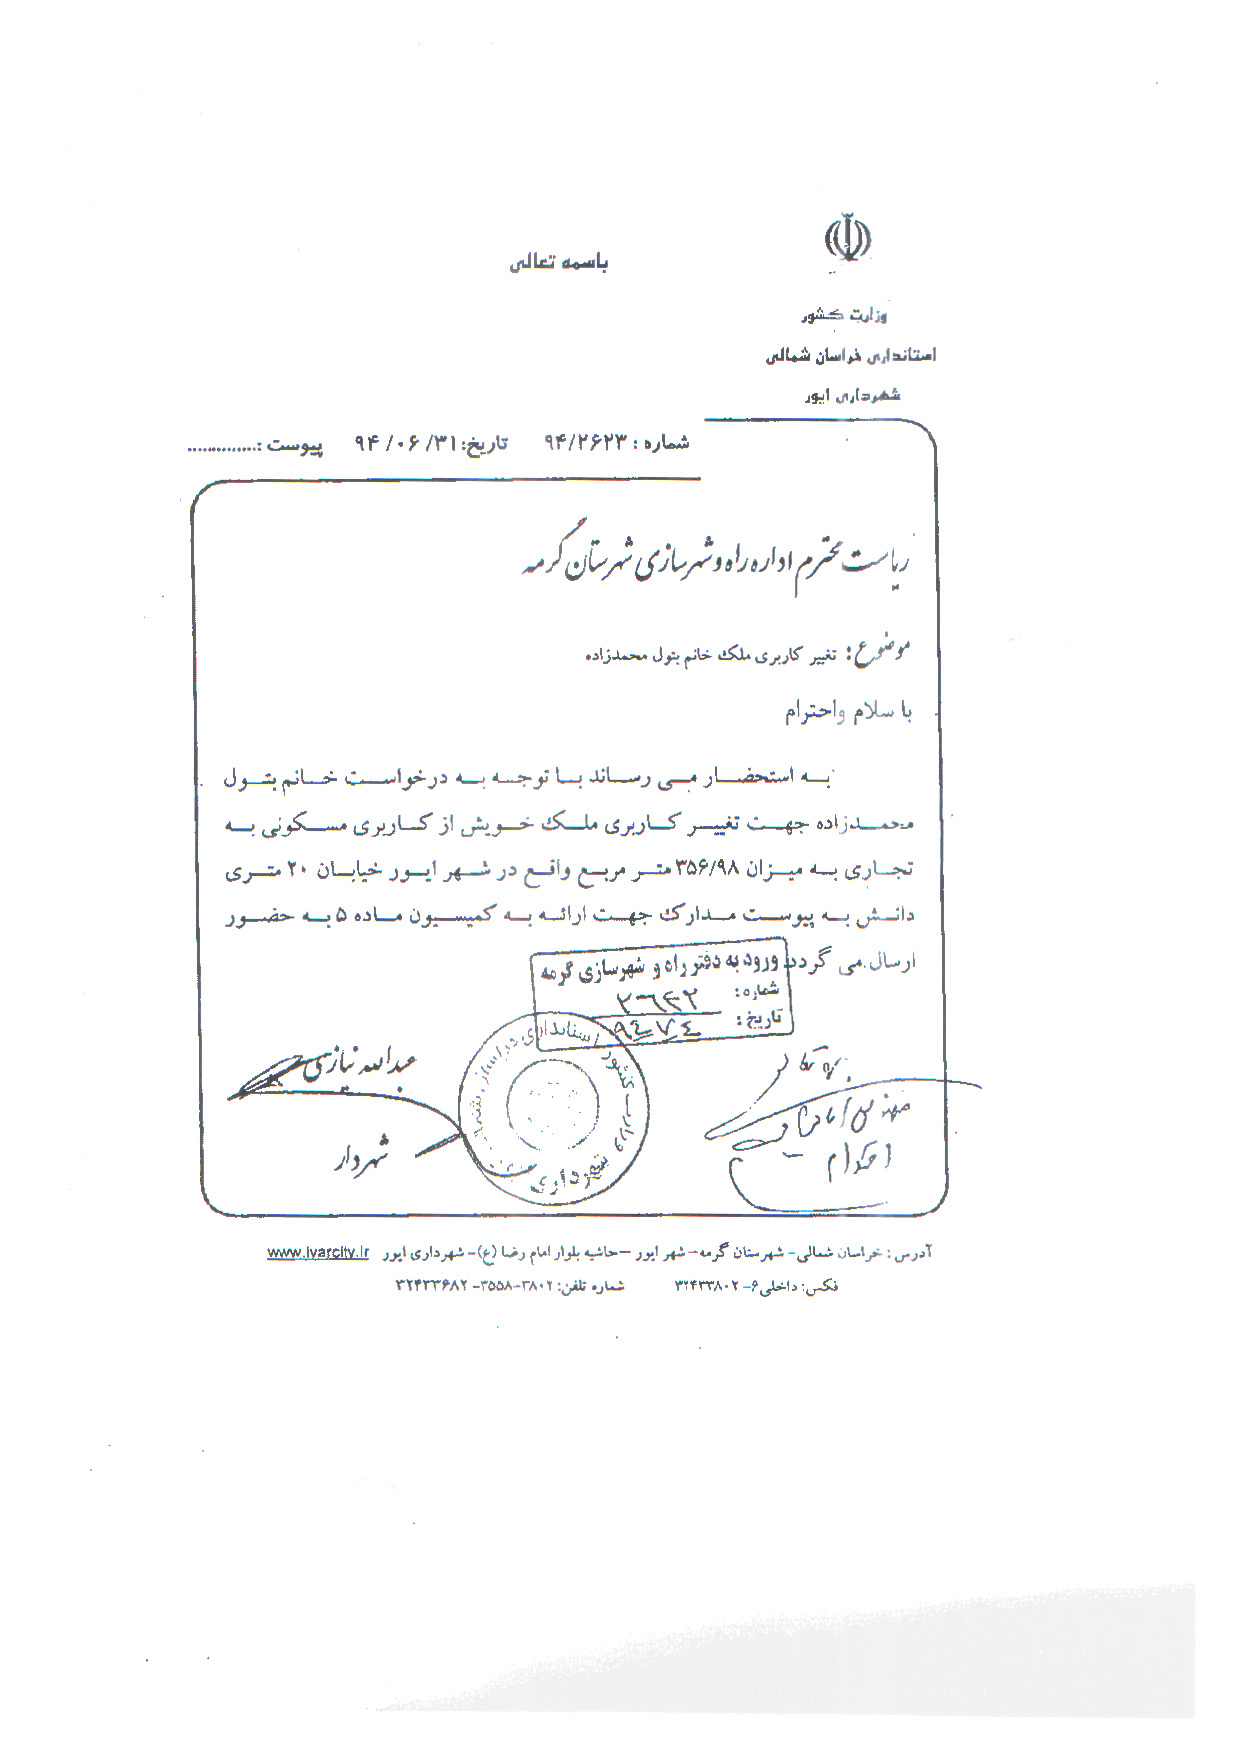 باسمه تعالی
وزارت کشور
استانداری خراسان شمالی
شهرداری ایور
شماره : ۹۴/۲۶۲۳ تاریخ: ۹۴/۰۶/۳۱ پیوست :..............
ریاست محترم اداره راه و شهرسازی شهرستان گرمه
موضوع: تغییر کاربری ملک خانم بتول محمدزاده
با سلام واحترام
به استحضار می رساند با توجه به درخواست خانم بتول
محمدزاده جهت تغییر کاربری ملک خویش از کاربری مسکونی به
تجاری به میزان ۳۵۶/۹۸ متر مربع واقع در شهر ایور خیابان ۲۰ متری
دانش به پیوست مدارک جهت ارائه به کمیسیون ماده ۵ به حضور
ارسال می گردد
ورود به دفتر راه و شهرسازی گرمه
شماره:
تاریخ: ۹۴/۷/۴
عبدالله نیازی
شهردار
وزارت کشور استانداری خراسان شمالی
شهرداری
مهندس
اقدام
آدرس: خراسان شمالی- شهرستان گرمه- شهر ایور –حاشیه بلوار امام رضا (ع)- شهرداری ایور www.ivarcity.ir
فکس: داخلی۶- ۳۲۴۳۳۸۰۲ شماره تلفن: ۳۸۰۲-۳۵۵۸- ۳۲۴۳۳۶۸۲